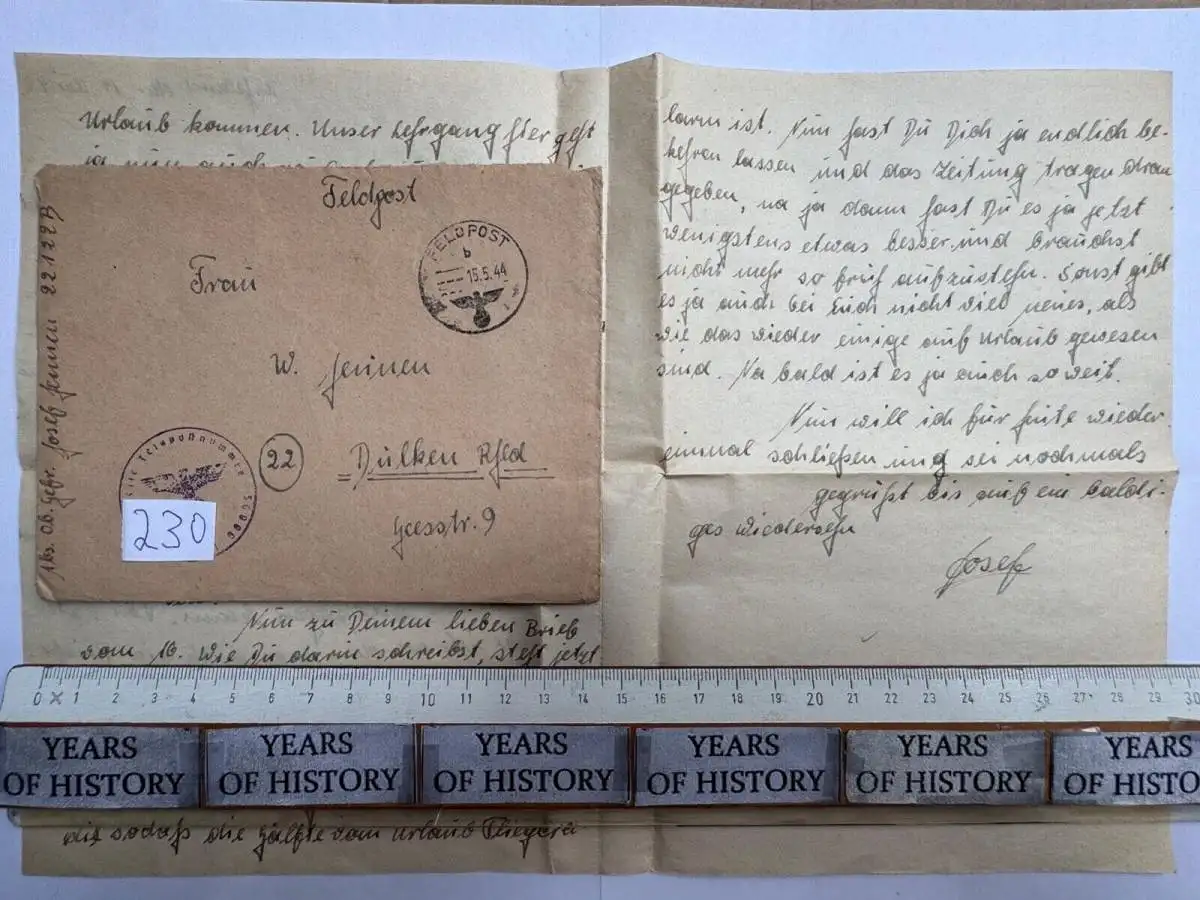 Urlaub kommen. Unser Lehrgang hier geht
ja nun auch
Feldpost
FELDPOST
b
15.5.44
Frau
W. Jennen
22
Dülken Rhld
Heesstr. 9
Abs. Ob. Gefr. Josef Jennen 22122B
Feldpostnummer
230
Nun zu Deinem lieben Brief
vom 10. Wie Du darin schreibst, steht jetzt
die sodaß die Hälfte vom Urlaub Fliegera
larm ist. Nun hast Du Dich ja endlich be-
kehren lassen und das Zeitung tragen dran
gegeben, na ja dann hast Du es ja jetzt
wenigstens etwas besser und brauchst
nicht mehr so früh aufzustehn. Sonst gibt
es ja auch bei Euch nicht viel neues, als
wie das wieder einige auf Urlaub gewesen
sind. Na bald ist es ja auch so weit.
Nun will ich für heute wieder
einmal schließen und sei nochmals
gegrüßt bis auf ein baldi-
ges wiedersehn
Josef
0 1 2 3 4 5 6 7 8 9 10 11 12 13 14 15 16 17 18 19 20 21 22 23 24 25 26 27 28 29 30
YEARS OF HISTORY
YEARS OF HISTORY
YEARS OF HISTORY
YEARS OF HISTORY
YEARS OF HISTORY
YEARS OF HISTO